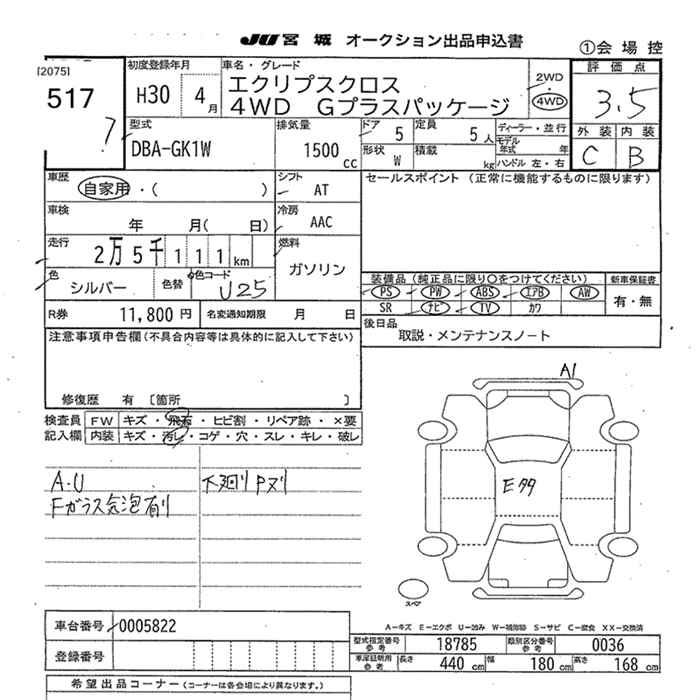 JU宮城 オークション出品申込書
①会場控
[2075]
517
初度登録年月
H30 4月
車名・グレード
エクリプスクロス
4WD Gプラスパッケージ
2WD
4WD
評価点
3.5
外装 内装
C B
型式
DBA-GK1W
排気量
1500 cc
ドア 5
定員 5人
形状 W
積載 kg
ディーラー・並行
モデル年式 年
ハンドル 左・右
車歴
自家用・( )
シフト
AT
セールスポイント (正常に機能するものに限ります)
車検
年 月( 日)
冷房
AAC
走行
2万5千111km
燃料
ガソリン
色
シルバー
色替
色コード
U25
装備品(純正品に限り○をつけてください)
PS PW ABS エアB AW
SR ナビ TV カワ
新車保証書
有・無
R券
11,800円
名変通知期限 月 日
後日品
取説・メンテナンスノート
注意事項申告欄(不具合内容等は具体的に記入して下さい)
修復歴 有 〔箇所 〕
検査員
記入欄
FW キズ・飛石・ヒビ割・リペア跡・×要
内装 キズ・汚レ・コゲ・穴・スレ・キレ・破レ
A.U
Fガラス気泡有り
下廻りPヌリ
A1
スペア
A－キズ E－エクボ U－凹み W－補修跡 S－サビ C－腐食 XX－交換済
車台番号
0005822
登録番号
型式指定番号 参考
18785
類別区分番号 参考
0036
車庫証明用 参考
長さ 440 cm 幅 180 cm 高さ 168 cm
希望出品コーナー(コーナーは各会場により異なります。)